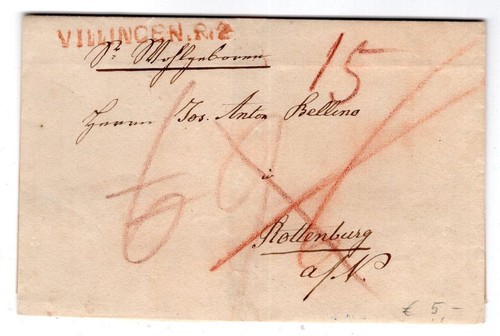 VILLINGEN.R.2
Sr. Wohlgeboren
15
Herrn Jos. Anton Bellino
in
Rottenburg
a/N.
€ 5,-